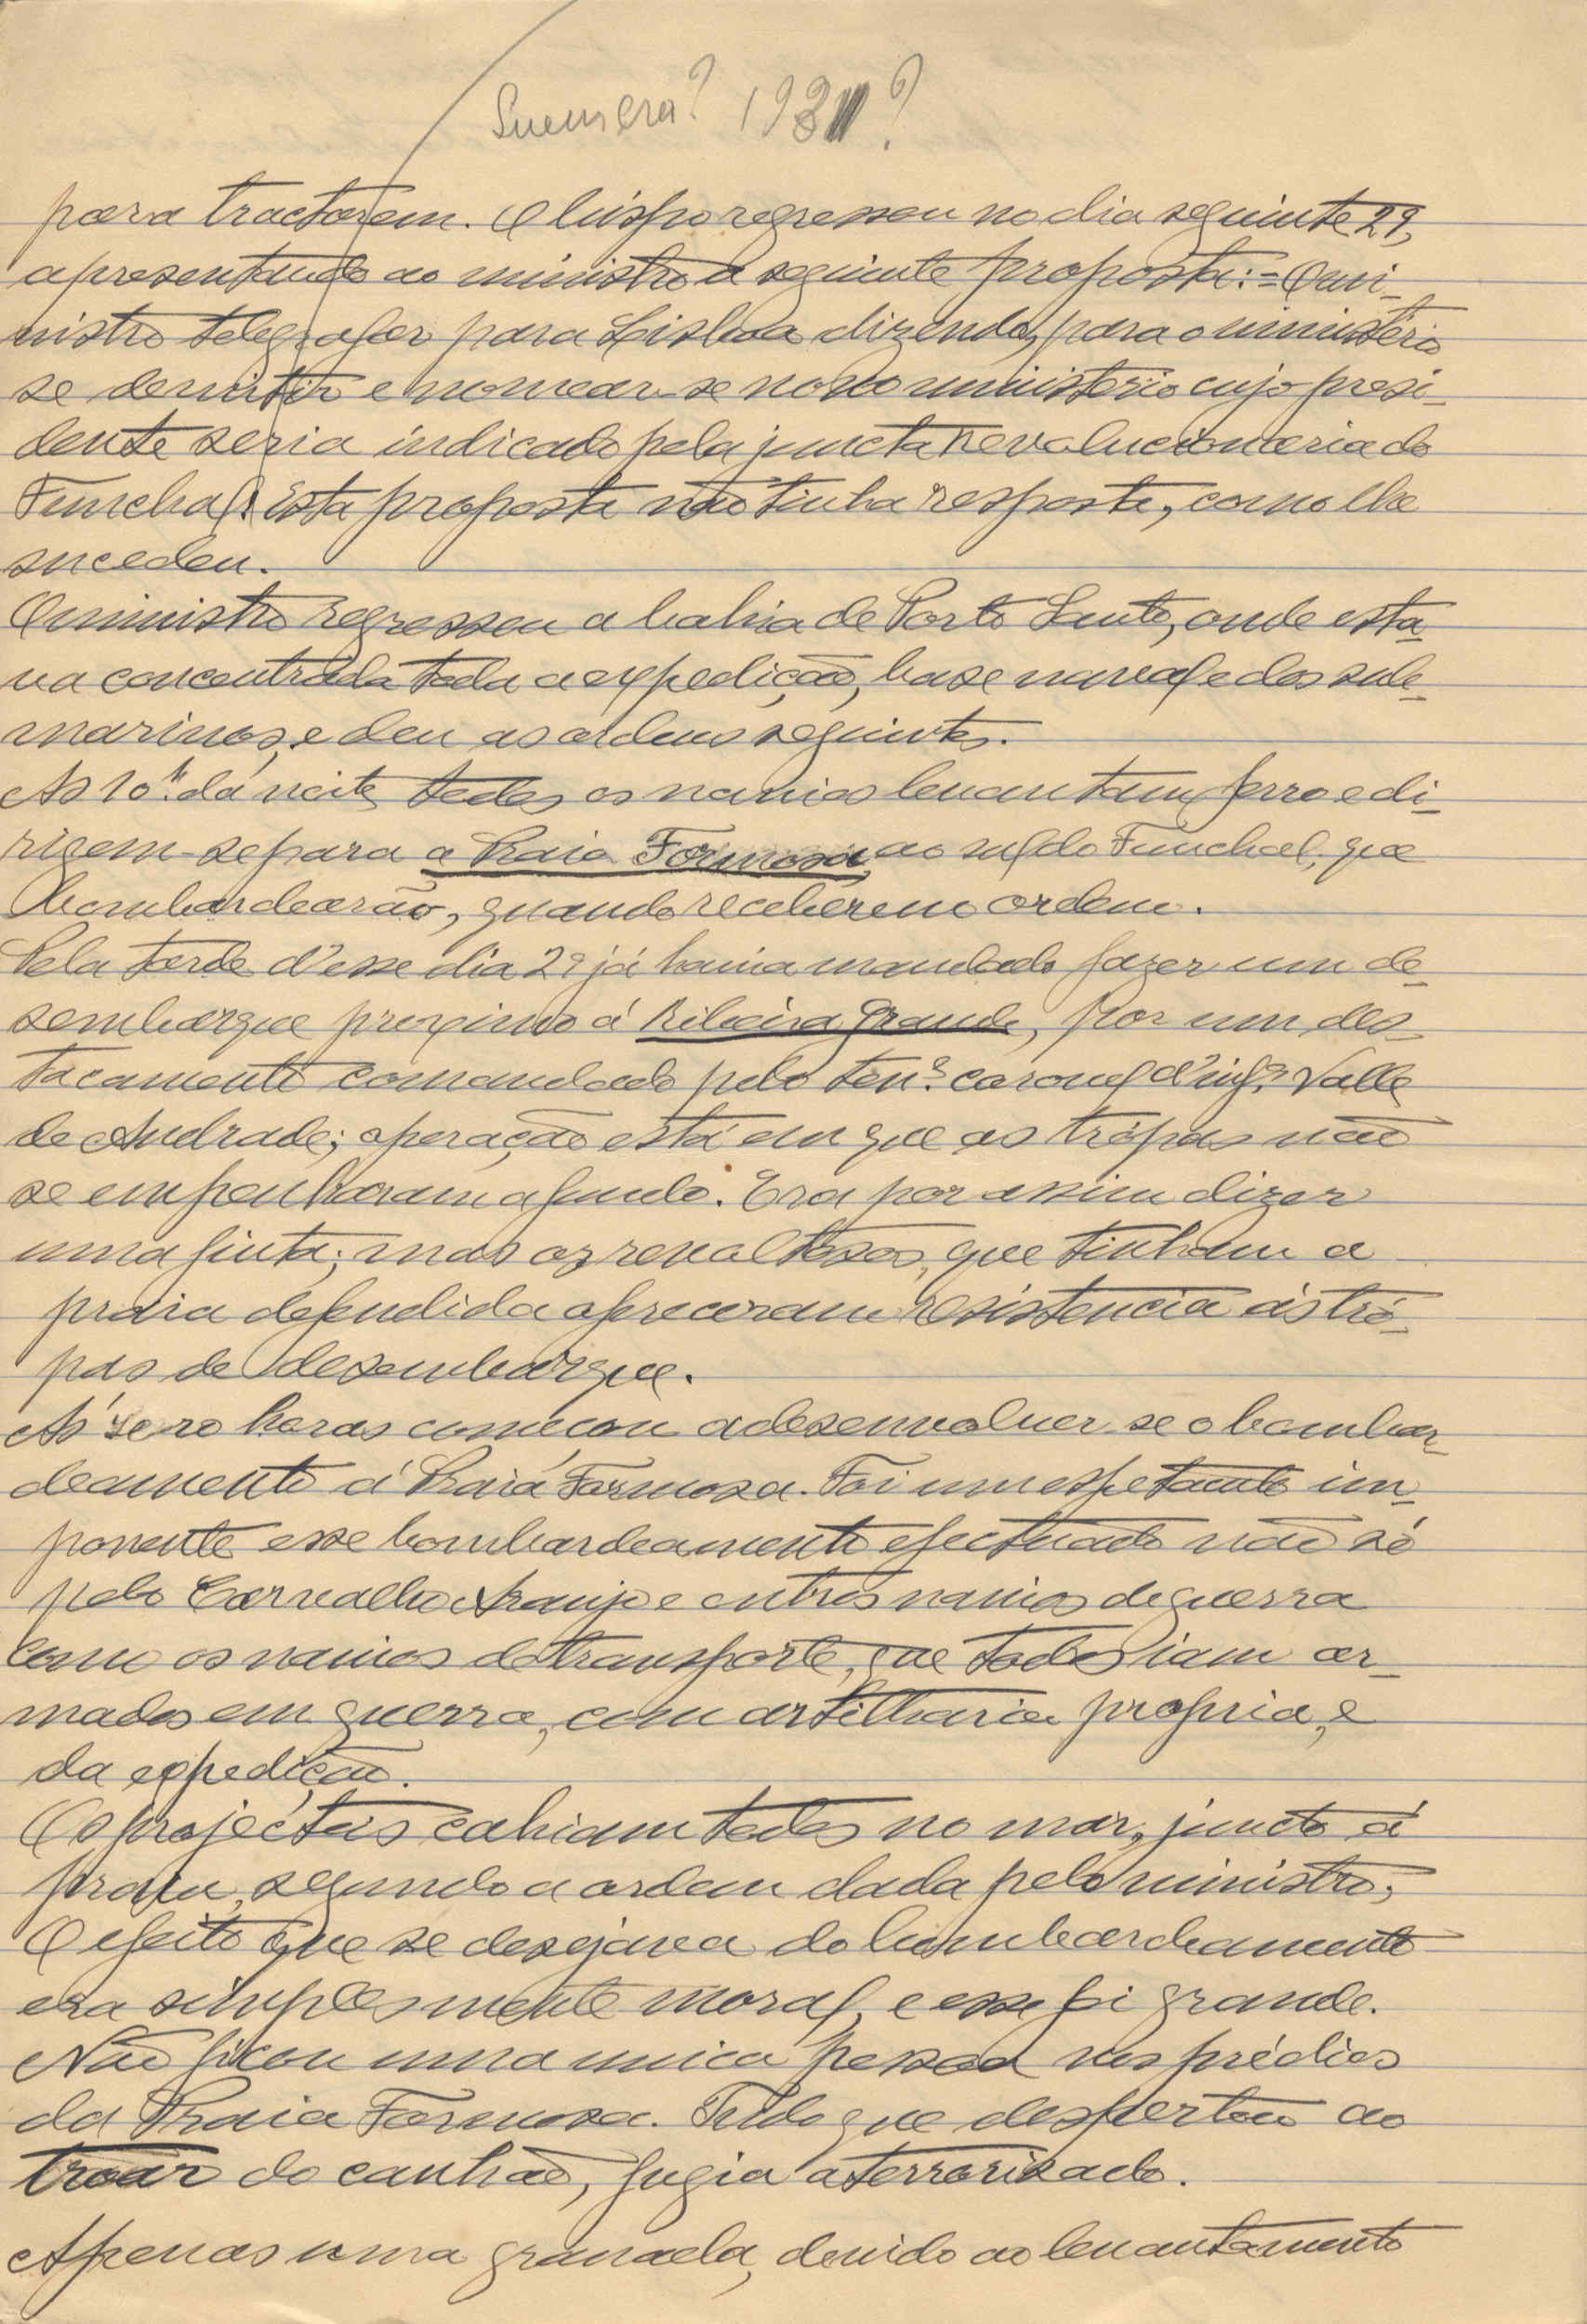 1931?
para tractarem. O bispo regressou no dia seguinte 29,
apresentando ao ministro a seguinte proposta:= O mi-
nistro telegrafar para Lisboa dizendo, para o ministério
se demitir e nomear-se novo ministerio cujo presi-
dente seria indicado pela juncta revolucionaria do
Funchal. Esta proposta não tinha resposta, como lhe
sucedeu.
O ministro regressou a bahia de Porto Santo, onde esta-
va concentrada toda a expedição, base naval e dos sub-
marinos, e deu as ordens seguintes.
As 10h. da noite todos os navios levantam ferro e di-
rigem-se para a Praia Formosa, ao sul do Funchal, que
bombardearão, quando receberem ordem.
Pela tarde d'esse dia 29 já havia mandado fazer um de-
sembarque proximo á Ribeira Grande, por um des-
tacamento comandado pelo ten.e coronel d'inf.a Valle
de Andrade; operação está em que as trópas não
se empenharam a fundo. Era por assim dizer
uma finta; mas os revoltosos, que tinham a
praia defendida ofreceram resistencia ás tró-
pas de desembarque.
As horas começou a desenvolver-se o bombar-
deamento á Praia Formosa. Foi um espetaculo im-
ponente esse bombardeamento efectuado não só
pelo Carvalho Araujo e outros navios de guerra
como os navios de transporte, que todos iam ar-
mados em guerra, com artilharia propria, e
da expedição.
Os projécteis cahiam todos no mar, juncto á
praia, segundo a ordem dada pelo ministro;
O efeito que se desejava do bombardeamento
era simplesmente moral, e esse foi grande.
Não ficou uma unica pessoa nos prédios
da Praia Formosa. Tudo que despertou ao
troar do canhão, fugia aterrorisado.
Apenas uma granada, devido ao levantamento